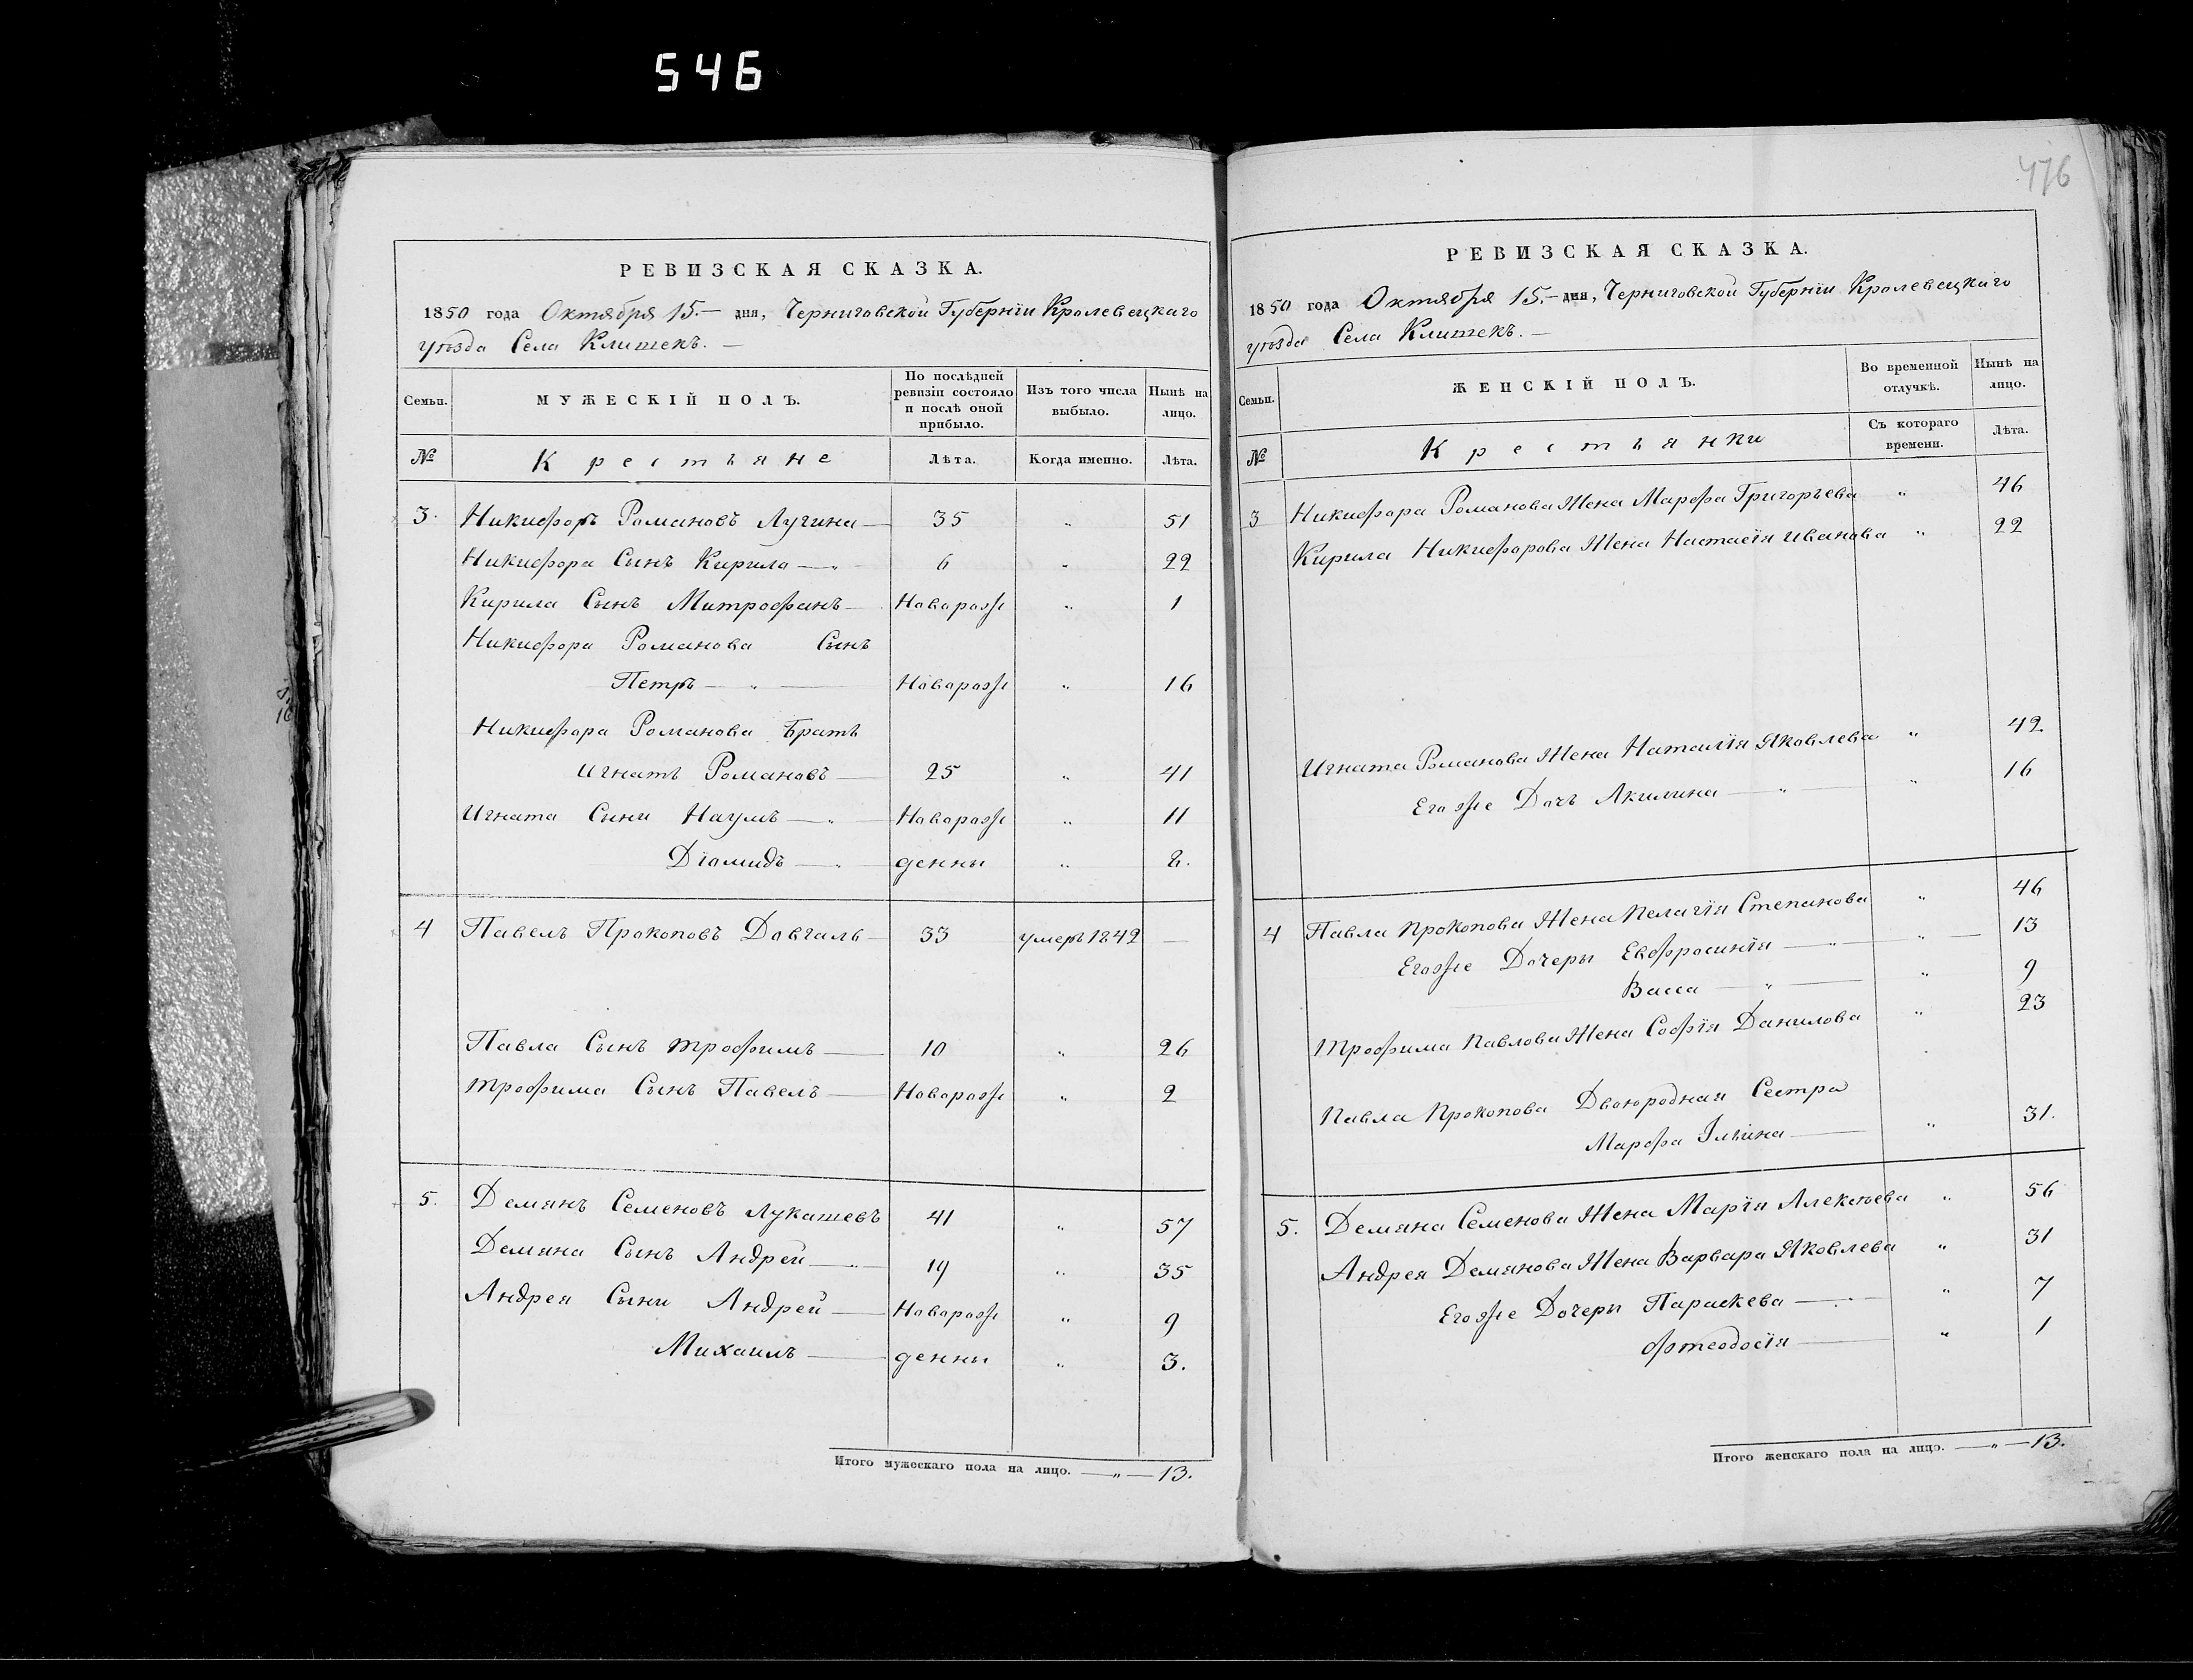 546
476
РЕВИЗСКАЯ СКАЗКА.
1850 года Октября 15.— дня, Черниговской Губерніи Кролевецкаго
уѣзда Села Клишекъ. —
Семьи.
МУЖЕСКІЙ ПОЛЪ.
По послѣдней ревизіи состояло и послѣ оной прибыло.
Изъ того числа выбыло.
Нынѣ на лицо.
№
Крестьяне
Лѣта.
Когда именно.
Лѣта.
3. Никифоръ Романовъ Лугина — 35 „ 51
Никифора Сынъ Кирила — „ 6 „ 22
Кирила Сынъ Митрофанъ — Новорож „ 1
Никифора Романова Сынъ
Петръ — „ — Новорож „ 16
Никифора Романова Братъ
Игнатъ Романовъ — 25 „ 41
Игната Сыни Наумъ — „ Новорож „ 11
Діомидъ — „ денны „ 8.
4 Павелъ Прокоповъ Довгаль — 33 умеръ 1842 —
Павла Сынъ Трофимъ — 10 „ 26
Трофима Сынъ Павелъ — Новорож „ 2
5. Демянъ Семеновъ Лукашевъ 41 „ 57
Демяна Сынъ Андрей — „ 19 „ 35
Андрея Сыни Андрей — Новорож „ 9
Михаилъ — денны „ 3.
Итого мужескаго пола на лицо. — „ — 13.
РЕВИЗСКАЯ СКАЗКА.
1850 года Октября 15.— дня, Черниговской Губерніи Кролевецкаго
уѣзда Села Клишекъ. —
Семьи.
ЖЕНСКІЙ ПОЛЪ.
Во временной отлучкѣ.
Нынѣ на лицо.
№
Крестьянки
Съ котораго времени.
Лѣта.
3 Никифора Романова Жена Марфа Григорьева „ 46
Кирила Никифорова Жена Настасія Иванова „ 22
Игната Романова Жена Наталія Яковлева „ 42
Егоже Дочъ Акилина — „ — „ 16
4 Павла Прокопова Жена Пелагія Степанова „ 46
Егоже Дочеры Евфросинія — „ — „ — 13
Васса — „ — „ 9
Трофима Павлова Жена Софія Данилова „ 23
Павла Прокопова Двоюродная Сестра
Марфа Ільина — „ 31.
5. Демяна Семенова Жена Марія Алексѣева „ 56
Андрея Демянова Жена Варвара Яковлева „ 31
Егоже Дочеры Параскева — „ 7
Фтеодосія — „ 1
Итого женскаго пола на лицо. — „ — 13.